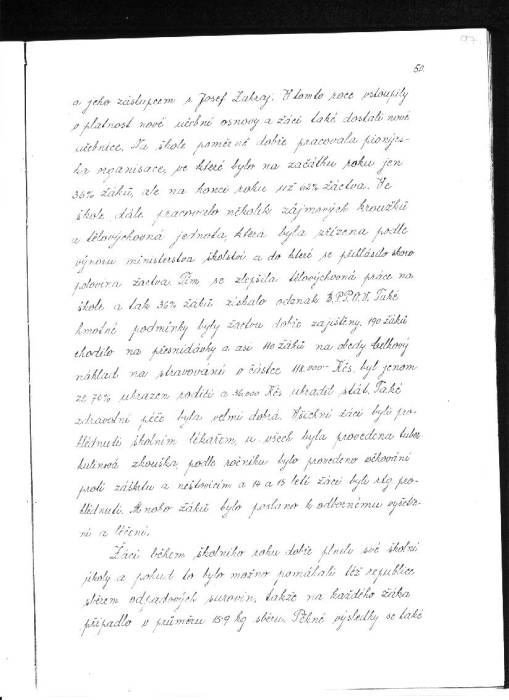 97
50.
a jeho zástupcem s. Josef Zakraj. V tomto roce vstoupily
v platnost nové učební osnovy a žáci také dostali nové
učebnice. Na škole poměrně dobře pracovala pionýrs-
ká organisace, ve které bylo na začátku roku jen
36% žáků, ale na konci roku už 62% žactva. Ve
škole dále pracovalo několik zájmových kroužků
a tělovýchovná jednota, která byla zřízena podle
výnosu ministerstva školství a do které se přihlásilo skoro
polovina žactva. Tím se zlepšila tělovýchovná práce na
škole a tak 36% žáků získalo odznak B.P.P.O.V. Také
hmotné podmínky byly žactvu dobře zajištěny. 190 žáků
chodilo na přesnídávky a asi 110 žáků na obědy. Celkový
náklad na stravování v částce 114.000 Kčs byl jenom
ze 70% uhrazen rodiči a 36.000 Kčs uhradil stát. Také
zdravotní péče byla velmi dobrá. Všichni žáci byli pro-
hlédnuti školním lékařem, u všech byla provedena tuber-
kulinová zkouška, podle ročníku bylo provedeno očkování
proti záškrtu a neštovicím a 14 a 15 letí žáci byli rtg pro-
hlédnuti. Mnoho žáků bylo posláno k odbornému vyšetře-
ní a léčení.
Žáci během školního roku dobře plnili své školní
úkoly a pokud to bylo možno pomáhali též republice
sběrem odpadových surovin, takže na každého žáka
připadlo v průměru 15.9 kg sběru. Pěkné výsledky se také